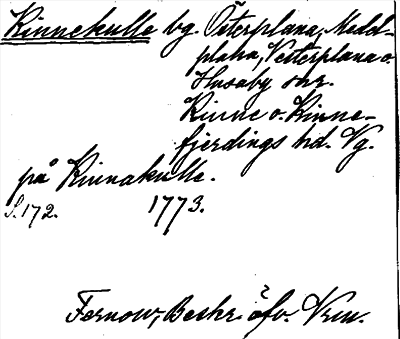 Kinnekulle bg. Österplana, Medel-
plana, Vesterplana o.
Husaby snr.
Kinne o. Kinne-
fjerdings hd. Vg.
på Kinnakulle.
S. 172. 1773.
Fernow, Beskr. öfv. Vrm.